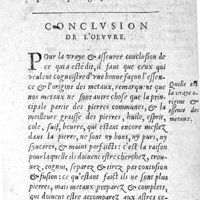 CONCLVSION
DE L'OEVVRE.
Pour la vraye & asseuree conclusion de
ce qui a esté dit, il faut que ceux qui
veulent cognoistre d'vne bonne façon l'essen-
ce & l'origine des metaux, remarquent que
nos metaux ne sont autre chose que la prin-
cipale partie des pierres communes, & la
meilleure graisse des pierre, huile, esprit,
sel, suif, beurre, qui estant encore meslez
dans la pierre, ne sont ny bons, ny puri,
sincere, & moins parfaicts: c'est la raison
pourquoy ils doiuent estre cherchez, trouuez,
cognus, separez & tirez par contusion
& fusion: ce qu'estant fait ils ne sont plus
pierres, mais metaux preparez & complets,
qui doiuent estre comparez aux astres ce-
Quelle est
la vraye o-
rigine &
essence des
metaux.